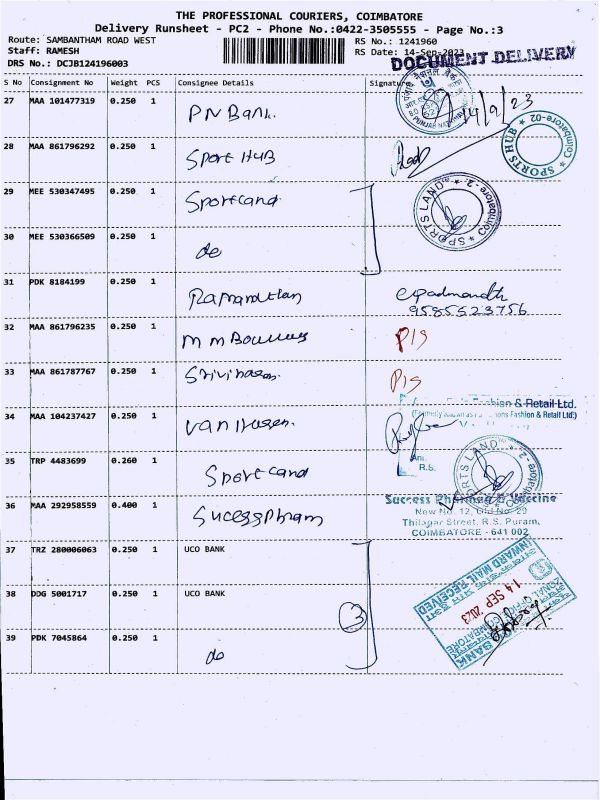 THE PROFESSIONAL COURIERS, COIMBATORE
Delivery Runsheet - PC2 - Phone No.:0422-3505555 - Page No.:3
Route: SAMBANTHAM ROAD WEST
Staff: RAMESH
DRS No.: DCJB124196003
RS No.: 1241960
RS Date: 14-Sep-2023
DOCUMENT DELIVERY
S No Consignment No Weight PCS Consignee Details Signature
27 MAA 101477319 0.250 1 PN Bank. 14/9/23
28 MAA 861796292 0.250 1 Sport HUB
SPORTS HUB * Coimbatore-02 *
29 MEE 530347495 0.250 1 Sportland
SPORTS LAND * Coimbatore-2 *
30 MEE 530366509 0.250 1 do
31 PDK 8184199 0.250 1 epadmanabh
9585523756
32 MAA 861796235 0.250 1 P/S
33 MAA 861787767 0.250 1 Srivinasan. P/S
Fashion & Retail Ltd.
Fashion & Retail Ltd)
34 MAA 104237427 0.250 1 Van Husen.
R.S.
35 TRP 4483699 0.260 1 Sportland
SPORTS LAND * Coimbatore-2 *
36 MAA 292958559 0.400 1 Sucesspharm
Success Pharma & Vaccine
New No. 12, Old No. 29
Thilagar Street, R.S. Puram,
COIMBATORE - 641 002
37 TRZ 280006063 0.250 1 UCO BANK
38 DDG 5001717 0.250 1 UCO BANK
3
INWARD MAIL RECEIVED
14 SEP 2023
ZONAL OFFICE, COIMBATORE
BANK
39 PDK 7045864 0.250 1 do